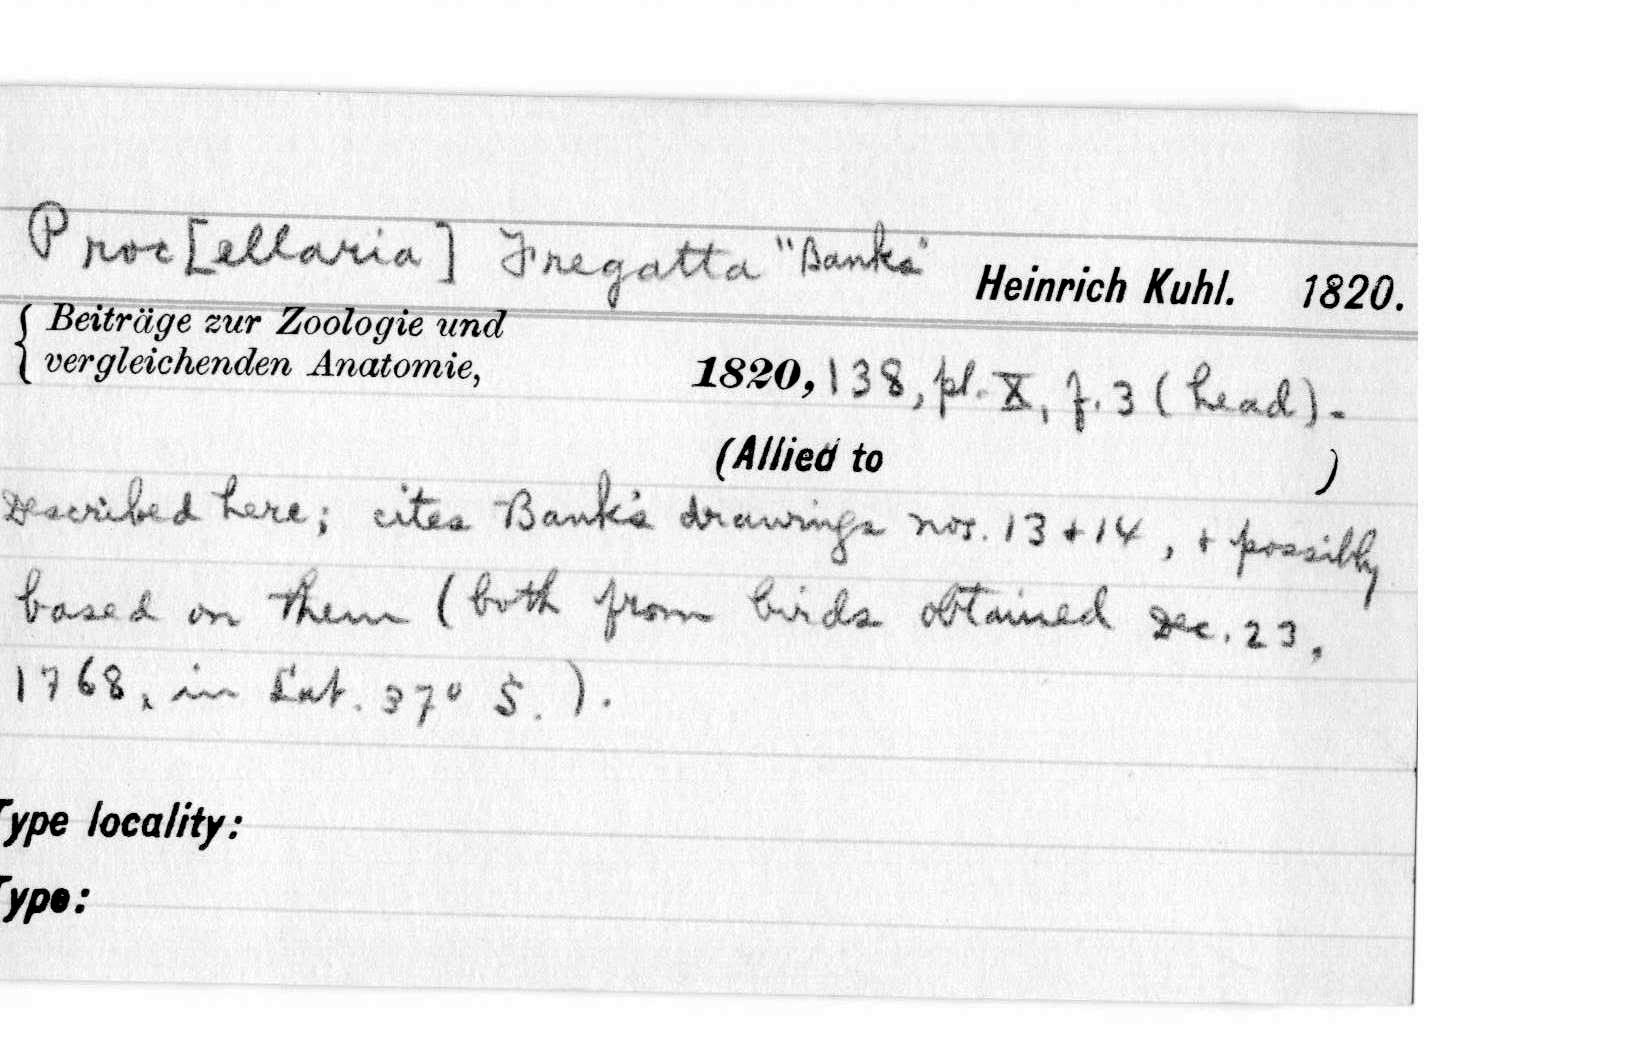 Proc[ellaria] Fregatta "Banks" Heinrich Kuhl. 1820.
{ Beiträge zur Zoologie und
vergleichenden Anatomie, 1820, 138, pl. X, f. 3 (head).
(Allied to )
Described here; cites Bank's drawings nos. 13 + 14, + possibly
based on them (both from birds obtained Dec. 23,
1768, in Lat. 37° S.).
Type locality:
Type: